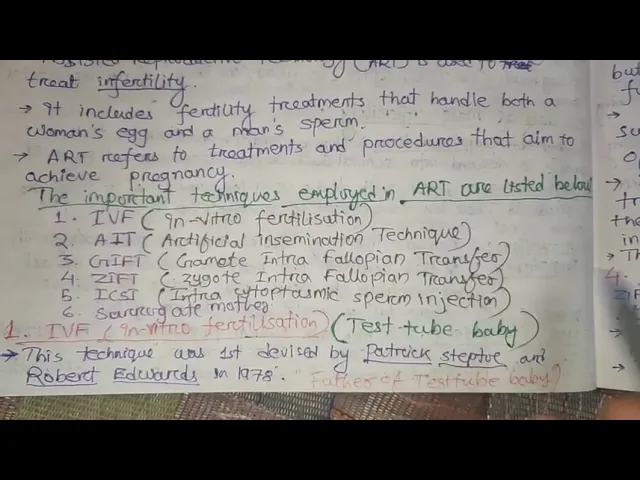 Assisted Reproductive Technology (ART) is used to
treat infertility.
→ It includes fertility treatments that handle both a
woman's egg and a man's sperm.
→ ART refers to treatments and procedures that aim to
achieve pregnancy.
The important techniques employed in ART are listed below
1. IVF (In-vitro fertilisation)
2. AIT (Artificial insemination Technique)
3. GIFT (Gamete Intra Fallopian Transfer)
4. ZIFT (Zygote Intra Fallopian Transfer)
5. ICSI (Intra cytoplasmic sperm injection)
6. Surrogate mother
1. IVF (In-vitro fertilisation) (Test-tube baby)
→ This technique was 1st devised by Patrick steptoe and
Robert Edwards in 1978. "Father of Test tube baby)
but
4.
ZIF